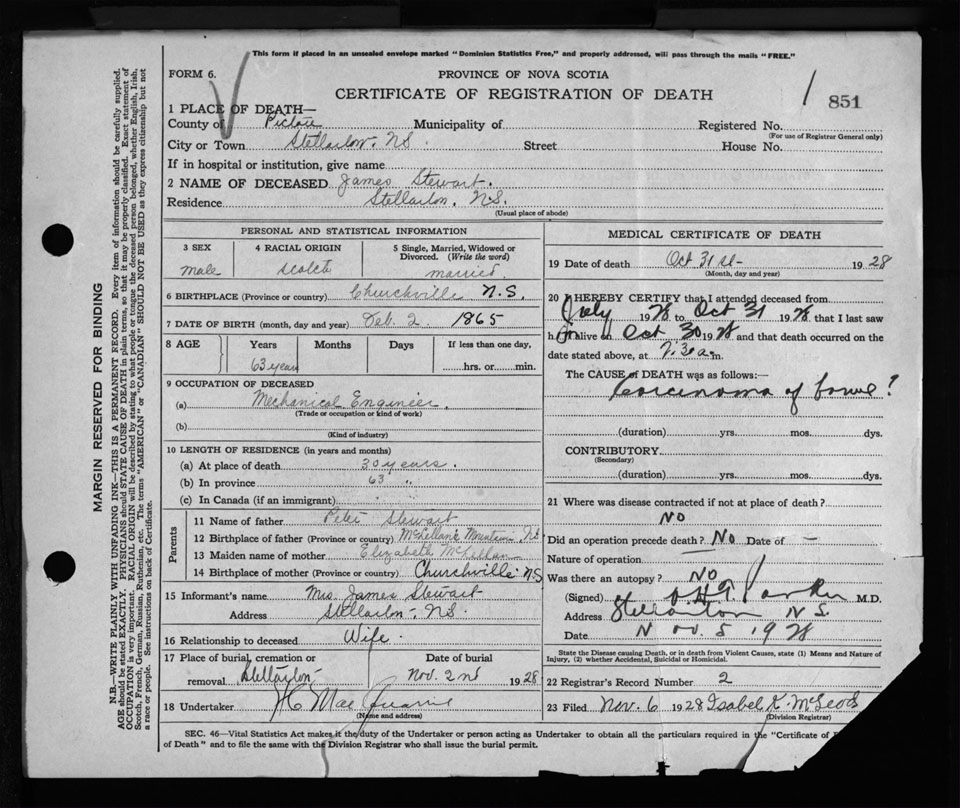 This form if placed in an unsealed envelope marked "Dominion Statistics Free," and properly addressed, will pass through the mails "FREE."
FORM 6.
PROVINCE OF NOVA SCOTIA
CERTIFICATE OF REGISTRATION OF DEATH
851
1 PLACE OF DEATH—
County of Pictou Municipality of Registered No.
(For use of Registrar General only)
City or Town Stellarton. N.S. Street House No.
If in hospital or institution, give name
2 NAME OF DECEASED James Stewart.
Residence Stellarton. N.S.
(Usual place of abode)
PERSONAL AND STATISTICAL INFORMATION
3 SEX 4 RACIAL ORIGIN 5 Single, Married, Widowed or Divorced. (Write the word)
male Scotch married.
6 BIRTHPLACE (Province or country) Churchville N.S.
7 DATE OF BIRTH (month, day and year) Feb. 2. 1865
8 AGE Years Months Days If less than one day,
63 years hrs. or min.
9 OCCUPATION OF DECEASED
(a) Mechanical Engineer.
(Trade or occupation or kind of work)
(b)
(Kind of industry)
10 LENGTH OF RESIDENCE (in years and months)
(a) At place of death 30 years.
(b) In province 63 "
(c) In Canada (if an immigrant)
Parents
11 Name of father Peter Stewart
12 Birthplace of father (Province or country) McLellan's Mountain, N.S.
13 Maiden name of mother Elizabeth McLellan
14 Birthplace of mother (Province or country) Churchville N.S
15 Informant's name Mrs. James Stewart
Address Stellarton. N.S.
16 Relationship to deceased Wife.
17 Place of burial, cremation or removal Stellarton Date of burial Nov. 2nd 1928
18 Undertaker
(Name and address)
MEDICAL CERTIFICATE OF DEATH
19 Date of death Oct 31st 1928
(Month, day and year)
20 I HEREBY CERTIFY that I attended deceased from
July 1928 to Oct 31 1928 that I last saw
him alive on Oct 30 1928 and that death occurred on the
date stated above, at 7.30 a m.
The CAUSE of DEATH was as follows:—
Carcinoma of bowel?
(duration) yrs. mos. dys.
CONTRIBUTORY
(Secondary)
(duration) yrs. mos. dys.
21 Where was disease contracted if not at place of death?
NO
Did an operation precede death? No Date of –
Nature of operation
Was there an autopsy? NO
(Signed) M.D.
Address Stellarton N.S.
Date Nov. 5 1928
State the Disease causing Death, or in death from Violent Causes, state (1) Means and Nature of
Injury, (2) whether Accidental, Suicidal or Homicidal.
22 Registrar's Record Number 2
23 Filed Nov. 6 1928 Isabel K. McLeod
(Division Registrar)
SEC. 46—Vital Statistics Act makes it the duty of the Undertaker or person acting as Undertaker to obtain all the particulars required in the "Certificate of
of Death" and to file the same with the Division Registrar who shall issue the burial permit.
MARGIN RESERVED FOR BINDING
N.B.—WRITE PLAINLY WITH UNFADING INK—THIS IS A PERMANENT RECORD. Every item of information should be carefully supplied.
AGE should be stated EXACTLY. PHYSICIANS should STATE CAUSE OF DEATH in plain terms, so that it may be properly classified. Exact statement of
OCCUPATION is very important. RACIAL ORIGIN will be described by stating to what people or tongue the deceased person belonged, whether English, Irish,
Scotch, French, German, Russian, Ruthenian, etc. The terms "AMERICAN" or "CANADIAN" SHOULD NOT BE USED as they express citizenship but not
a race or people. See instructions on back of Certificate.